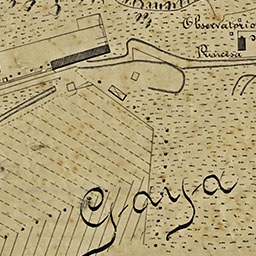 Observatorio
Princesa
Gaya